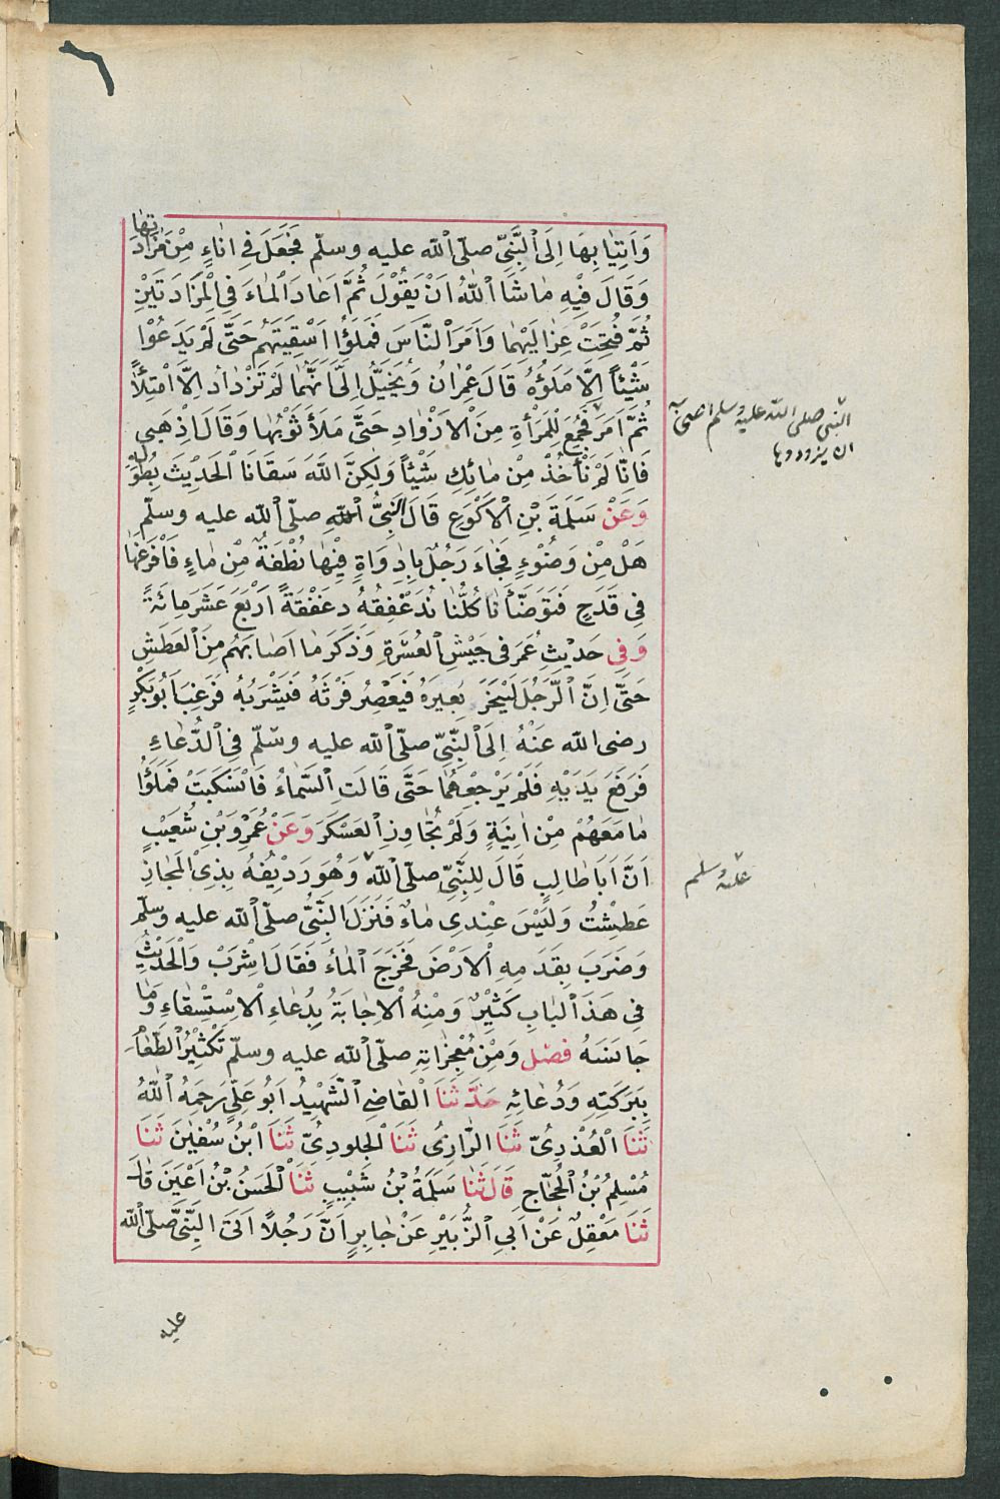 وَاَتَيَا بِهَا اِلَى النَّبِىِّ صلّى الله عليه وسلّم فَجَعَلَ فِى اِنَاءٍ مِنْ مَزَادَتَيْهَا
وَقَالَ فِيهِ مَا شَاءَ اللّٰهُ اَنْ يَقُولَ ثُمَّ اَعَادَ الْمَاءَ فِى الْمَزَادَتَيْنِ
ثُمَّ فُتِحَتْ عَزَالَيْهِمَا وَاَمَرَ النَّاسَ فَمَلَؤُا اَسْقِيَتَهُمْ حَتَّى لَمْ يَدَعُوْا
شَيْئاً اِلَّا مَلَؤُهُ قَالَ عِمْرَانُ وَيُخَيَّلُ اِلَىَّ اَنَّهُمَا لَمْ تَزْدَادَ اِلَّا امْتِلَأً
ثُمَّ اَمَرَ فَجُمِعَ لِلْمَرْأَةِ مِنَ الْاَزْوَادِ حَتَّى مَلَأَ ثَوْبَهَا وَقَالَ اذْهَبِى
النبى صلى الله عليه وسلم اصحابه
ان يزودوها
فَاِنَّا لَمْ نَأْخُذْ مِنْ مَائِكِ شَيْئاً وَلٰكِنَّ اللّٰهَ سَقَانَا الْحَدِيْثَ بِطُوْلِهِ
وَعَنْ سَلَمَةَ بْنِ الْاَكْوَعِ قَالَ النَّبِىُّ اللّٰهِ صلّى الله عليه وسلّم
هَلْ مِنْ وَضُوْءٍ فَجَاءَ رَجُلٌ بِاِدَاوَةٍ فِيْهَا نُطْفَةٌ مِنْ مَاءٍ فَاَفْرَغَهَا
فِى قَدَحٍ فَتَوَضَّأْنَا كُلُّنَا نُدَغْفِقُهُ دَغْفَقَةً اَرْبَعَ عَشَرَ مِائَةً
وَفِى حَدِيْثِ عُمَرَ فِى جَيْشِ الْعُسْرَةِ وَذَكَرَ مَا اَصَابَهُمْ مِنَ الْعَطَشِ
حَتَّى اِنَّ الرَّجُلَ لَيَنْحَرُ بَعِيرَهُ فَيَعْصِرُ فَرْثَهُ فَيَشْرَبُهُ فَرَغِبَ اَبُو بَكْرٍ
رضى الله عَنْهُ اِلَى النَّبِىِّ صلّى الله عليه وسلّم فِى الدُّعَاءِ
فَرَفَعَ يَدَيْهِ فَلَمْ يَرْجِعْهُمَا حَتَّى قَالَتِ السَّمَاءُ فَانْسَكَبَتْ فَمَلَؤُا
مَا مَعَهُمْ مِنْ اٰنِيَةٍ وَلَمْ تُجَاوِزِ الْعَسْكَرَ وَعَنْ عَمْرِو بْنِ شُعَيْبٍ
اَنَّ اَبَا طَالِبٍ قَالَ لِلنَّبِىِّ صلّى الله وَهُوَ رَدِيْفُهُ بِذِى الْمَجَازِ
عليه وسلم
عَطِشْتُ وَلَيْسَ عِنْدِى مَاءٌ فَنَزَلَ النَّبِىُّ صلّى الله عليه وسلّم
وَضَرَبَ بِقَدَمِهِ الْاَرْضَ فَخَرَجَ الْمَاءُ فَقَالَ اشْرَبْ وَالْحَدِيْثُ
فِى هَذَا الْبَابِ كَثِيْرٌ وَمِنْهُ الْاِجَابَةُ بِدُعَاءِ الْاِسْتِسْقَاءِ وَمَا
جَانَسَهُ فصل وَمِنْ مُعْجِزَاتِهِ صلّى الله عليه وسلّم تَكْثِيْرُ الطَّعَامِ
بِبَرَكَتِهِ وَدُعَائِهِ حَدَّثَنَا الْقَاضِى الشَّهِيْدُ اَبُو عَلِىٍّ رَحِمَهُ اللّٰهُ
ثَنَا الْعُذْرِىُّ ثَنَا الرَّازِىُّ ثَنَا الْجُلُودِىُّ ثَنَا ابْنُ سُفْيٰنَ ثَنَا
مُسْلِمُ بْنُ الْحَجَّاجِ قَالَ ثَنَا سَلَمَةُ بْنُ شَبِيْبٍ ثَنَا الْحَسَنُ بْنُ اَعْيَنَ قَالَ
ثَنَا مَعْقِلٌ عَنْ اَبِى الزُّبَيْرِ عَنْ جَابِرٍ اَنَّ رَجُلاً اَتَى النَّبِىَّ صلّى الله
عليه